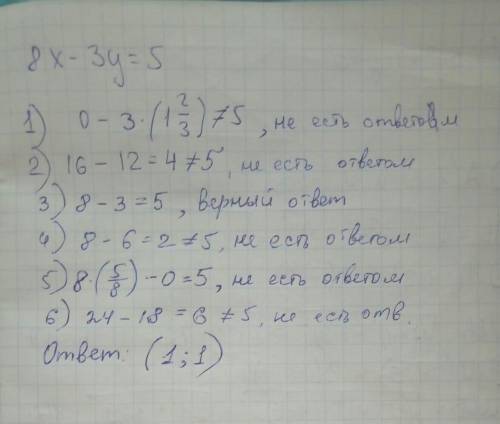 8x - 3y = 5
1) 0 - 3·(1 2/3) ≠ 5, не есть ответом
2) 16 - 12 = 4 ≠ 5, не есть ответом
3) 8 - 3 = 5, верный ответ
4) 8 - 6 = 2 ≠ 5, не есть ответом
5) 8·(5/8) - 0 = 5, не есть ответом
6) 24 - 18 = 6 ≠ 5, не есть отв.
Ответ: (1; 1)